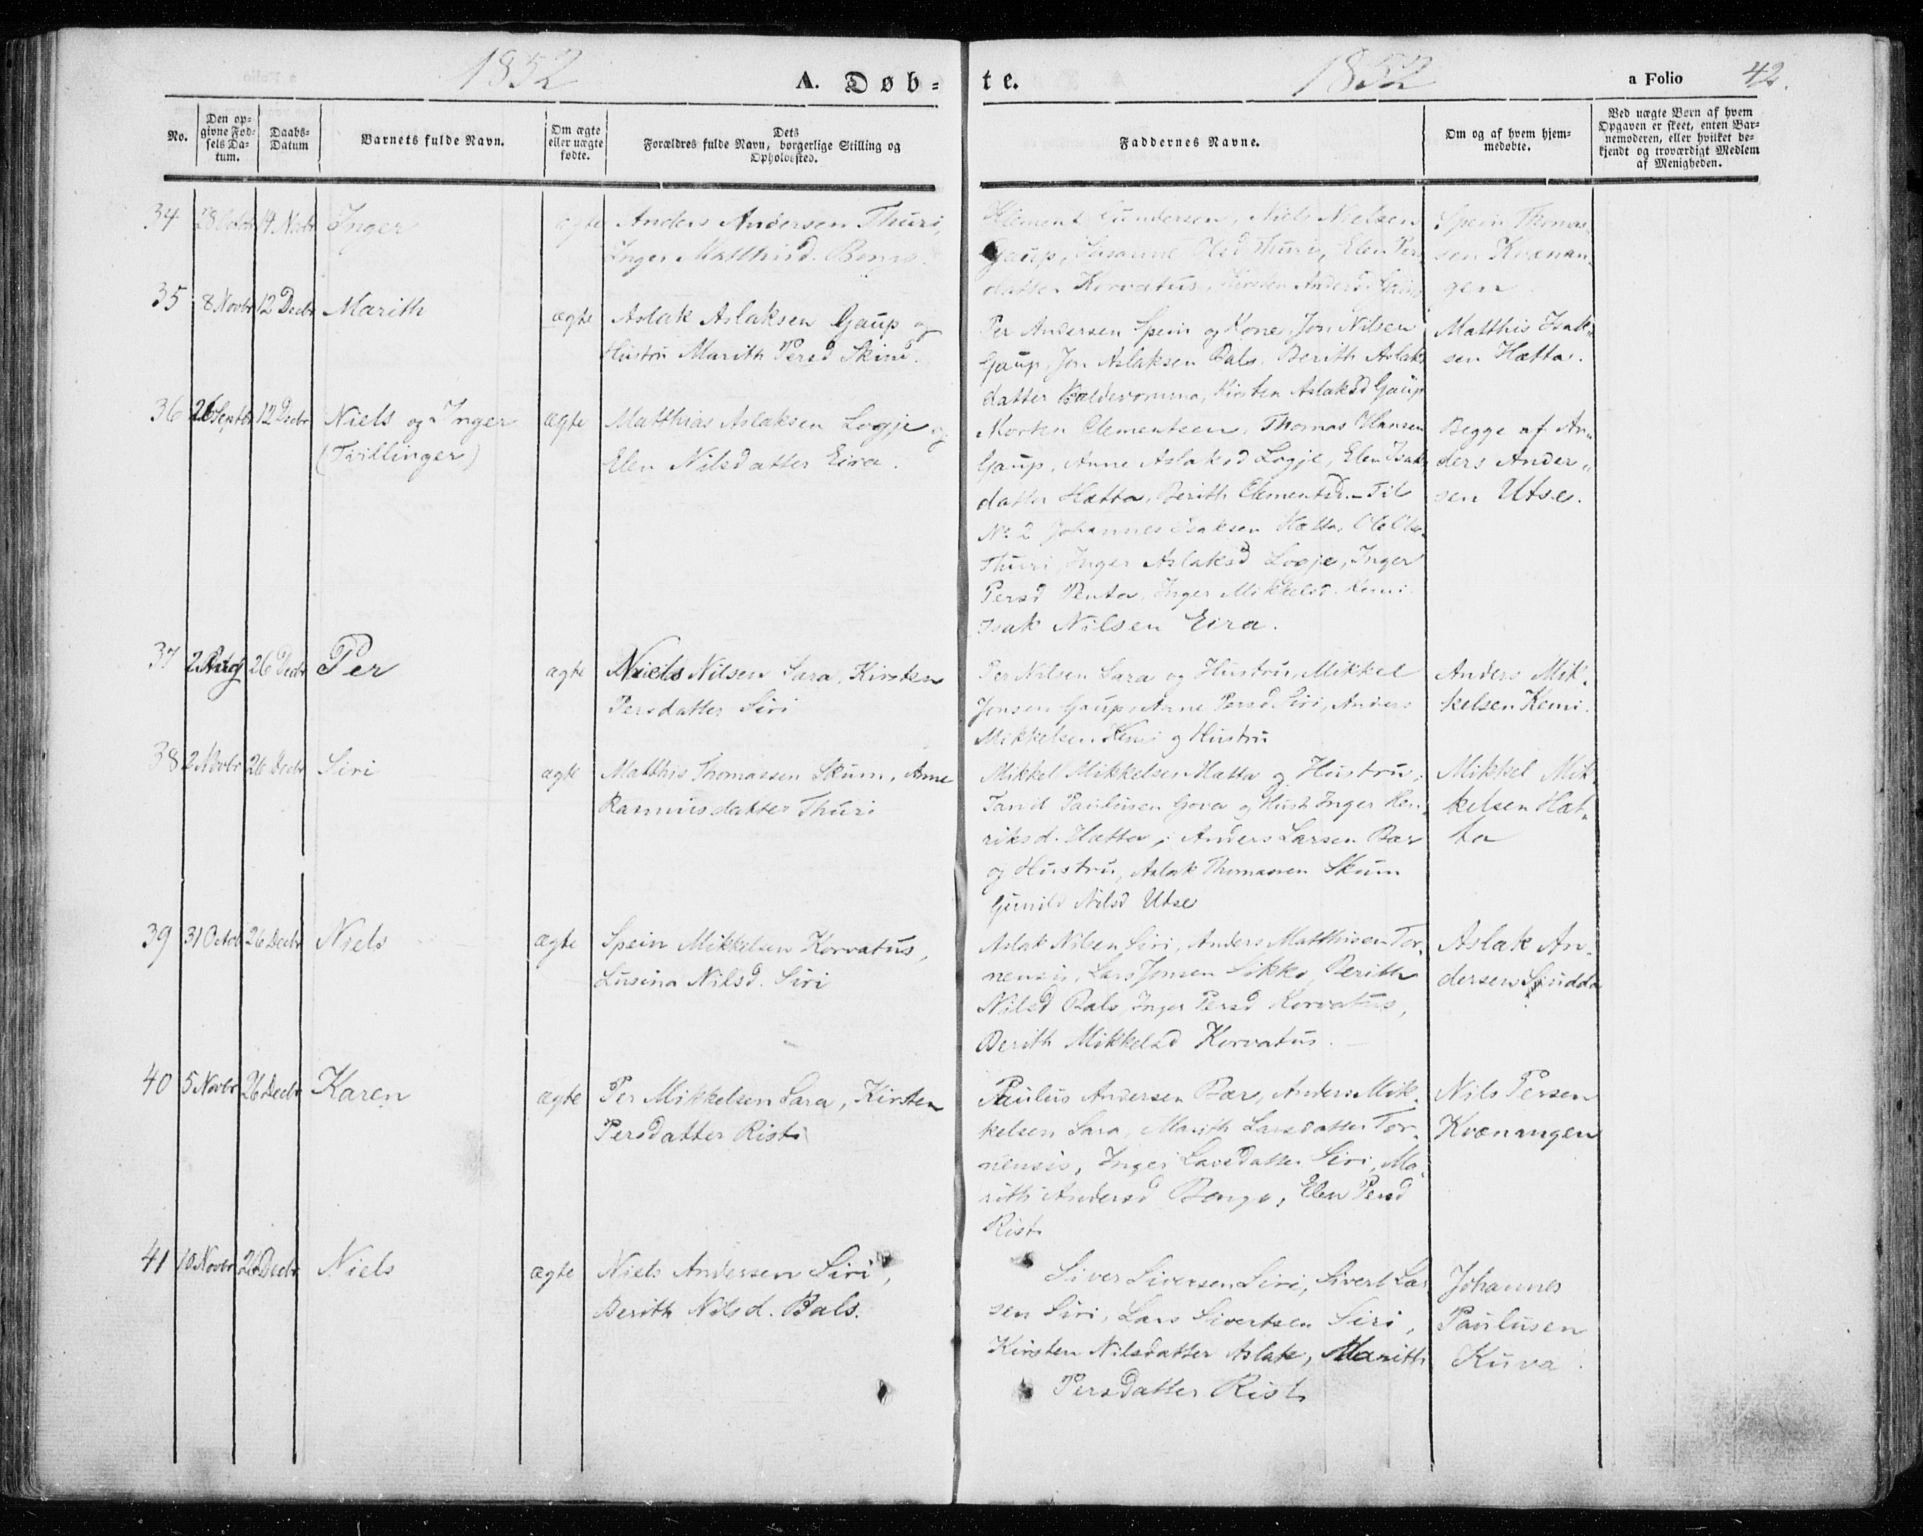 1852
A. Døb=
te.
1852
a Folio 42.
No.
Den op-
givne Fød-
sels Da-
tum.
Daabs-
Datum
Barnets fulde Navn.
Om ægte
eller uægte
fødte.
Dets
Forældres fulde Navn, borgerlige Stilling og
Opholdssted.
Faddernes Navne.
Om og af hvem hjem-
medøbte.
Ved uægte Børn af hvem
Opgaven er skeet, enten Bar-
nemoderen, eller hvilket be-
kjendt og troværdigt Medlem
af Menigheden.
34 28 Octobr 14 Novbr Inger ægte Anders Andersen Thuri,
Inger Matthisd. Bongo.
Klement Gundersen, Niels Nielsen
Gaup, Susanne Olsd Thuri, Elen Per
datter Korvatus, Kirsten Andersd Gaup
Spein Thomas-
sen Kvænan-
gen
35 8 Novbr 12 Decbr Marith ægte Aslak Aslaksen Gaup og
Hustru Marith Persd Skini.
Per Andersen Spein og Kone, Jon Nilsen
Gaup, Jon Aslaksen Bals, Berith Aslak
datter Baldevomma, Kirsten Aslaksd Gaup
Matthis Isak-
sen Hætta.
36 26 Septbr 12 Decbr Niels og Inger
(Tvillinger)
ægte Matthias Aslaksen Logje og
Elen Nilsdatter Eira.
Morten Clementsen, Thomas Hansen
Gaup, Anne Aslaksd Logje, Elen Isak
datter Hætta, Berith Clementsd. – Til
No 2 Johannes Isaksen Hætta, Ole Ols.
Thuri, Inger Aslaksd Logje, Inger
Persd Penta, Inger Mikkelsd. Kemi
Isak Nilsen Eira.
Begge af An-
ders Ander-
sen Utse.
37 2 Aug 26 Decbr Per ægte Niels Nilsen Sara, Kirsten
Persdatter Siri
Per Nilsen Sara og Hustru, Mikkel
Jonsen Gaup, Anne Persd. Siri, Anders
Mikkelsen Kemi og Hustru
Anders Mik-
kelsen Kemi.
38 2 Novbr 26 Decbr Siri ægte Matthis Thomassen Skum, Anne
Rasmusdatter Thuri
Mikkel Mikkelsen Hætta og Hustru,
Tarid Paulusen Gova og Hust. Inger Hen-
riksd. Hætta, Anders Larsen Bær
og Hustru, Aslak Thomassen Skum
Gunild Nilsd Utse
Mikkel Mik-
kelsen Hæt-
ta
39 31 Octob 26 Decbr Niels ægte Spein Mikkelsen Korvatus,
Lusina Nilsd. Siri
Aslak Nilsen Siri, Anders Matthisen Tor-
nensis, Lars Jonsen Sikko, Berith
Nilsd Bals, Inger Persd Korvatus,
Berith Mikkelsd Korvatus.
Aslak An-
dersen Spidda
40 5 Novbr 26 Decbr Karen ægte Per Mikkelsen Sara, Kirsten
Persdatter Risti
Paulus Andersen Bær, Anders Mik-
kelsen Sara, Marith Larsdatter Tor-
nensis, Inger Larsdatter Siri, Ma-
rith Andersd Bongo, Elen Persd
Risti
Nils Persen
Kvænangen
41 10 Novbr 26 Decbr Niels ægte Niels Andersen Siri,
Berith Nilsd. Bals.
Siver Siversen Siri, Sivert Lar
sen Siri, Lars Sivertsen Siri,
Kirsten Nilsdatter Aslak, Marith
Persdatter Risti
Johannes
Paulusen
Kuva.